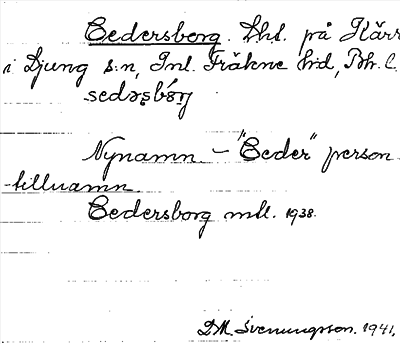 Cedersborg. Lht. på Kärr
i Ljung s:n, Inl. Fräkne hd, Bh. l.
sedəʂbórj
Nynamn – "Ceder" person
-tillnamn.
Cedersborg mtl. 1938.
D.M. Svenungsson. 1941.